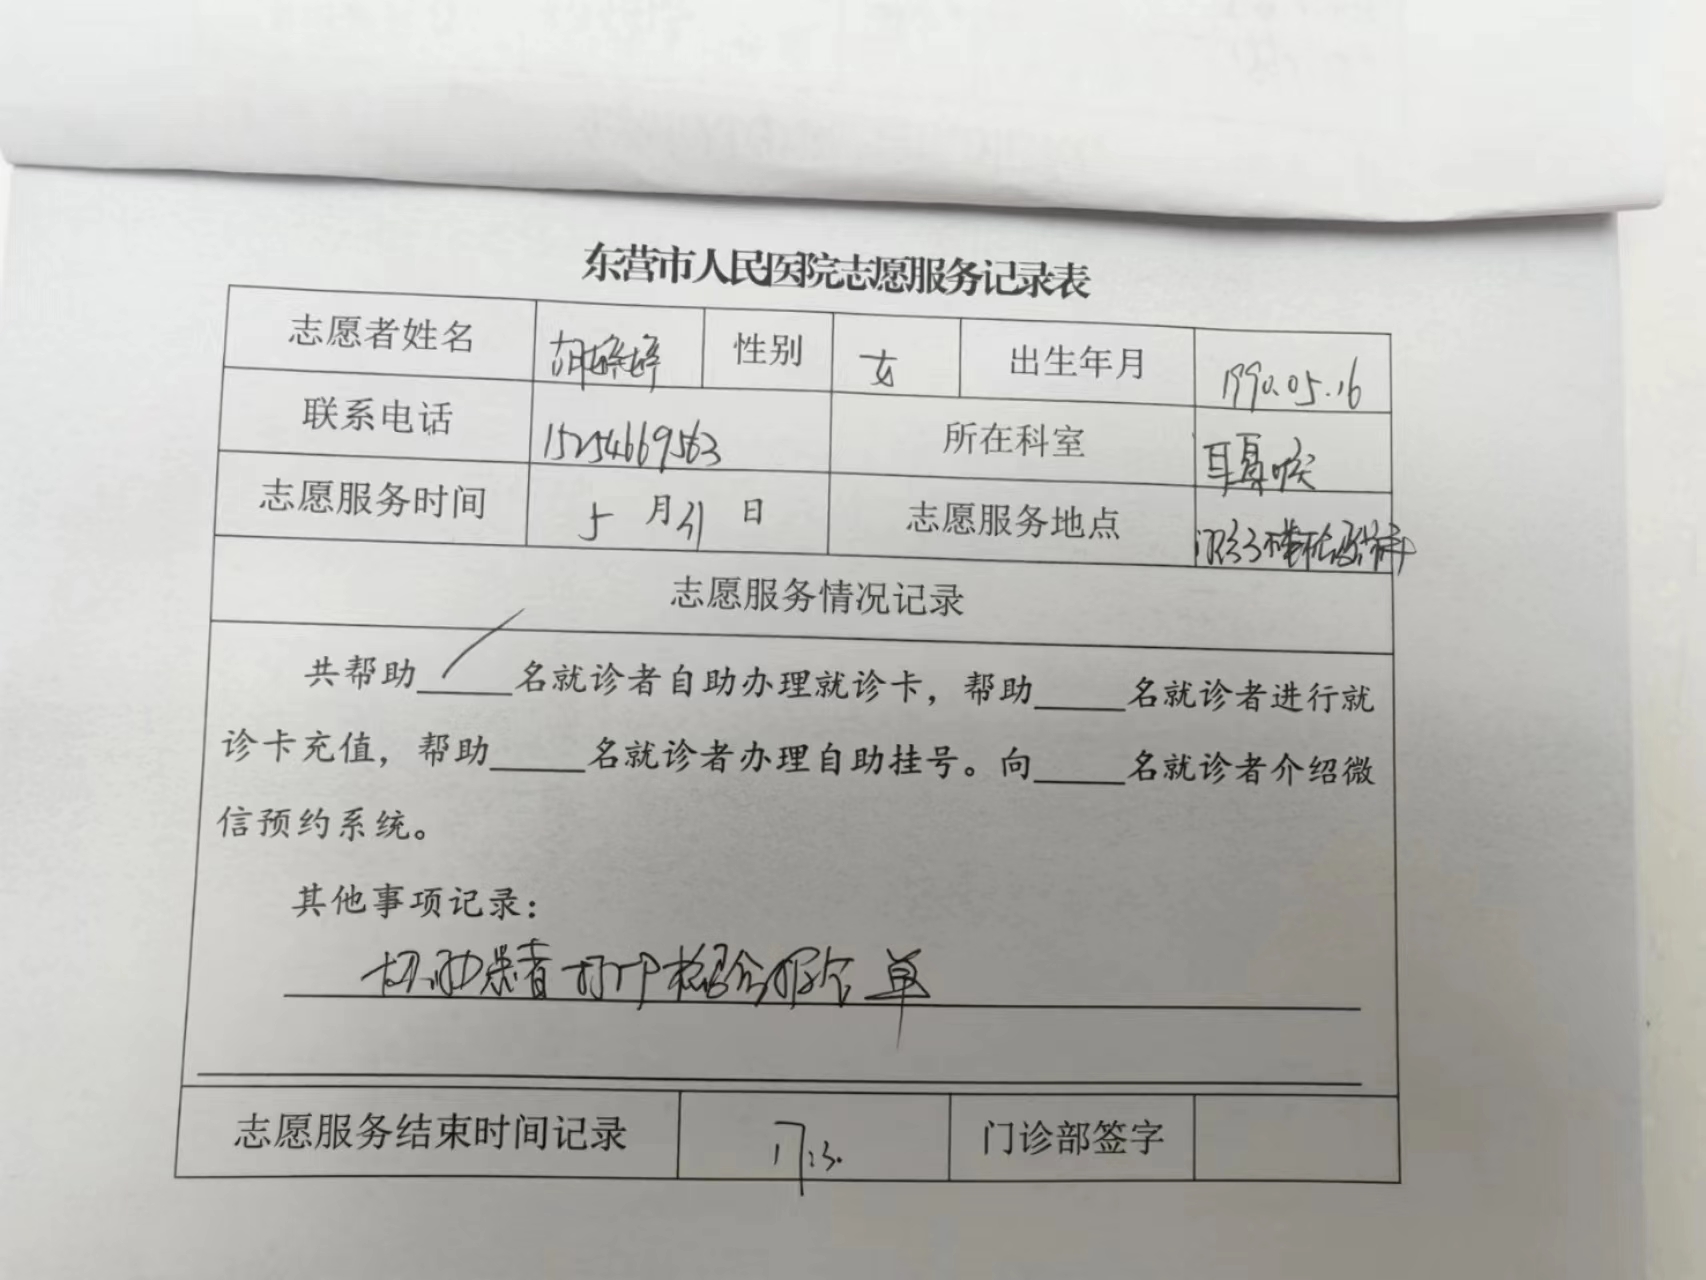 东营市人民医院志愿服务记录表
志愿者姓名 胡婷婷 性别 女 出生年月 1990.05.16
联系电话 15254669563 所在科室 耳鼻喉
志愿服务时间 5月21日 志愿服务地点 门诊三楼
志愿服务情况记录
共帮助_____名就诊者自助办理就诊卡，帮助_____名就诊者进行就
诊卡充值，帮助_____名就诊者办理自助挂号。向_____名就诊者介绍微
信预约系统。
其他事项记录：
协助患者打印检验报告单
志愿服务结束时间记录 17:30 门诊部签字